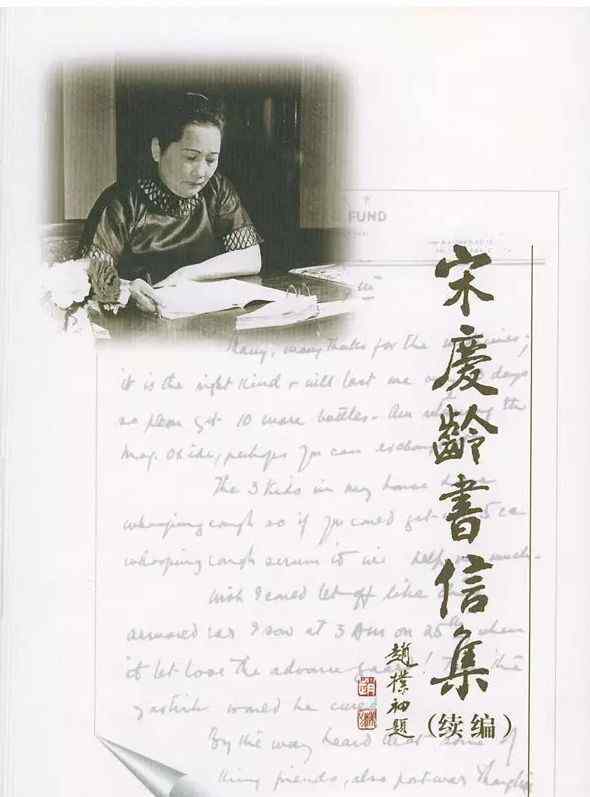 FUND
宋慶齡書信集
(续编)
趙樸初題
Many, many thanks for the
it is the right kind & will last me days
so please get 10 more bottles. Am the
mag. perhaps you can
The 3 kids in my house
whooping cough so if you could get 5 cc
whooping cough serum it will help much.
Wish I could let off like
armored car I saw at 3 AM on 25th when
it let loose the advance
would be cured
By the way heard that some of
friends, also post-war